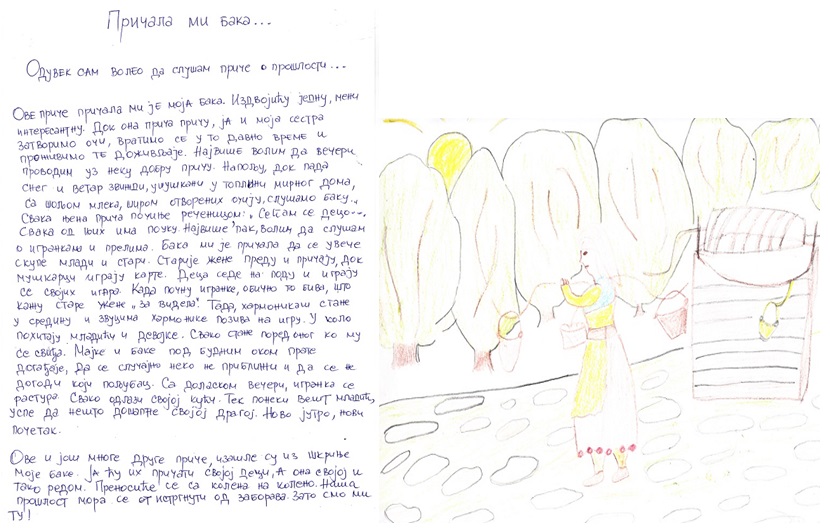 Причала ми бака...
Одувек сам волео да слушам приче о прошлости...
Ове приче причала ми је моја бака. Издвојићу једну, мени
интересантну. Док она прича причу, ја и моја сестра
затворимо очи, вратимо се у то давно време и
проживимо те доживљаје. Највише волим да вечери
проводим уз неку добру причу. Напољу, док пада
снег и ветар звижди, ушушкани у топлини мирног дома,
са шољом млека, широм отворених очију, слушамо баку...
Свака њена прича почиње реченицом: „Сећам се децо...
Свака од њих има поуку. Највише пак, волим да слушам
о игранкама и прелима. Бака ми је причала да се увече
скупе млади и стари. Старије жене преду и причају, док
мушкарци играју карте. Деца седе на поду и играју
се својих игара. Када почну игранке, обично то бива, што
кажу старе жене „за видела“. Тада, хармоникаш стане
у средину и звуцима хармонике позива на игру. У коло
похитају младићи и девојке. Свако стане поред оног ко му
се свиђа. Мајке и баке под будним оком прате
догађаје, да се случајно неко не приближи и да се не
догоди који пољубац. Са доласком вечери, игранка се
растура. Свако одлази својој кући. Тек понеки вешт младић,
успе да нешто дошапне својој драгој. Ново јутро, нови
почетак.
Ове и још многе друге приче, изашле су из шкриње
моје баке. Ја ћу их причати својој деци, а она својој и
тако редом. Преносиће се са колена на колено. Наша
прошлост мора се отиргнути од заборава. Зато смо ми
ту!